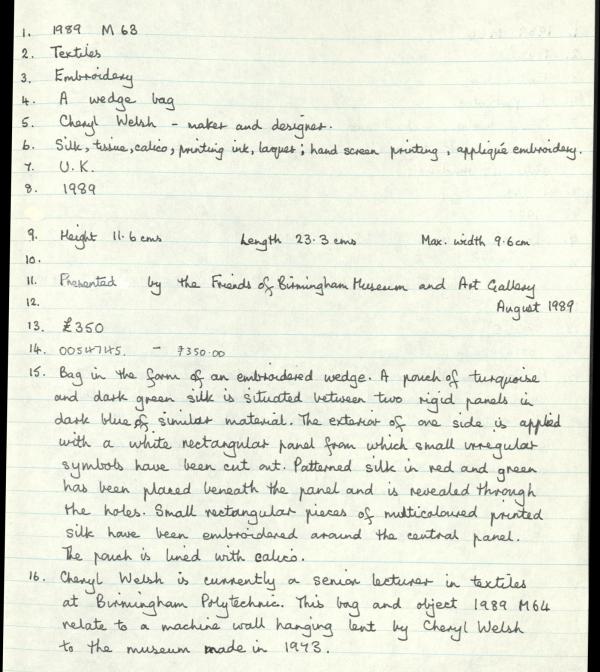 1. 1989 M 63
2. Textiles
3. Embroidery
4. A wedge bag
5. Cheryl Welsh - maker and designer.
6. Silk, tissue, calico, printing ink, laquer; hand screen printing, appliqué embroidery.
7. U.K.
8. 1989
9. Height 11.6 cms Length 23.3 cms Max. width 9.6cm
10.
11. Presented by the Friends of Birmingham Museum and Art Gallery
12. August 1989
13. £350
14. 0054745. - £350.00
15. Bag in the form of an embroidered wedge. A pouch of turquoise
and dark green silk is situated between two rigid panels in
dark blue of similar material. The exterior of one side is applied
with a white rectangular panel from which small irregular
symbols have been cut out. Patterned silk in red and green
has been placed beneath the panel and is revealed through
the holes. Small rectangular pieces of multicoloured printed
silk have been embroidered around the central panel.
The pouch is lined with calico.
16. Cheryl Welsh is currently a senior lecturer in textiles
at Birmingham Polytechnic. This bag and object 1989 M64
relate to a machine wall hanging lent by Cheryl Welsh
to the museum made in 1973.